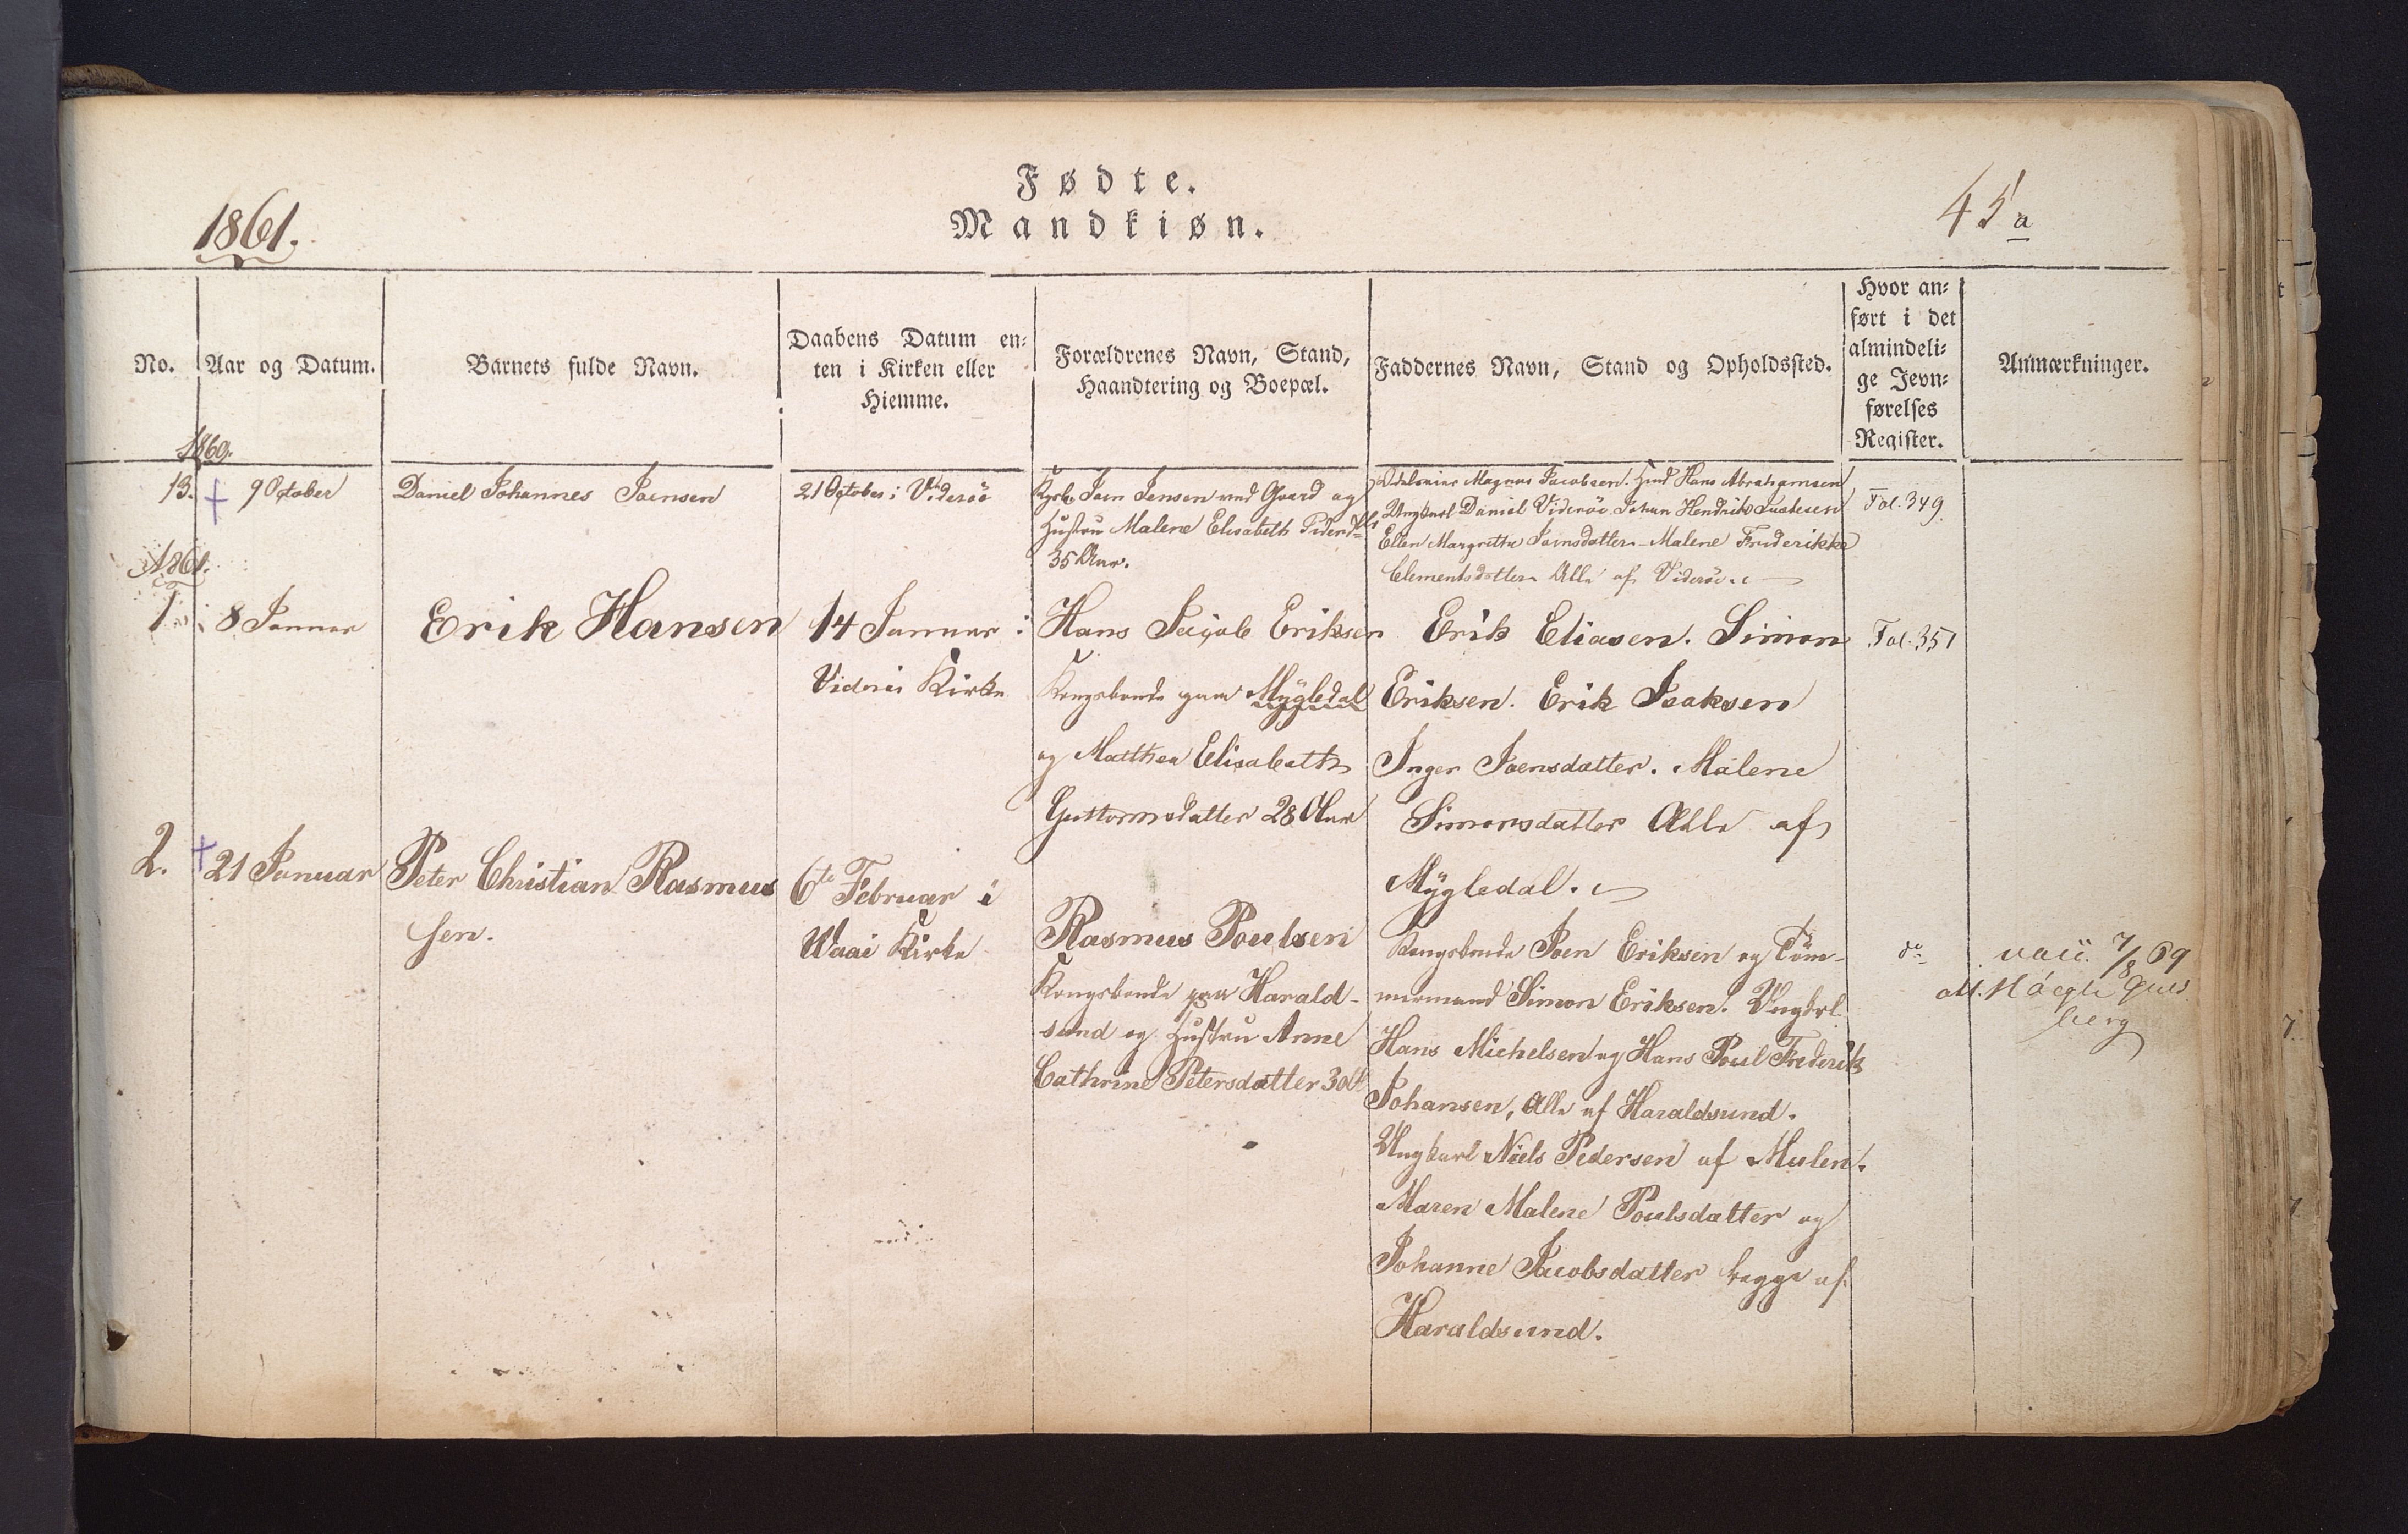 Fødte.
Mandkiøn.
1861.
45 a
No.
Aar og Datum.
Barnets fulde Navn.
Daabens Datum en-
ten i Kirken eller
Hiemme.
Forældrenes Navn, Stand,
Haandtering og Boepæl.
Faddernes Navn, Stand og Opholdssted.
Hvor an-
ført i det
almindeli-
ge Jevn-
førelses
Register.
Anmærkninger.
1860.
13.
9 October
Daniel Johannes Joensen
21 October i Viderøe
Joen Jensen ved Gaard og
Hustru Malene Elisabeth
35 Aar.
Magnus Jacobsen. Hans Abrahamsen
Ungkarl Daniel Viderøe. Johan Hendrik
Ellen Margrethe Joensdatter - Malene Friderikke
Clementsdatter Alle af Viderøe.
Fol. 349.
1861.
1.
8 Januar
Erik Hansen
14 Januar i
Viderøe Kirke
Hans Jacob Eriksen
Kongsbonde paa Mygledal
og Matthea Elisabeth
Guttormsdatter 28 Aar
Erik Eliasen. Simon
Eriksen. Erik Isaksen
Inger Joensdatter. Malene
Simonsdatter Alle af
Mygledal.
Fol. 351
2.
21 Januar
Peter Christian Rasmus
sen.
6te Februar i
Waai Kirke
Rasmus Poulsen
Kongsbonde paa Harald-
sund og Hustru Anne
Cathrine Petersdatter 30 A
Kongsbonde Joen Eriksen og Töm-
mermand Simon Eriksen. Ungkrl.
Hans Michelsen og Hans Poul Frederik
Johansen, Alle af Haraldsund.
Ungkarl Niels Pedersen af Mulen.
Maren Malene Poulsdatter og
Johanne Jacobsdatter begge af
Haraldsund.
do
7/8 69
berg